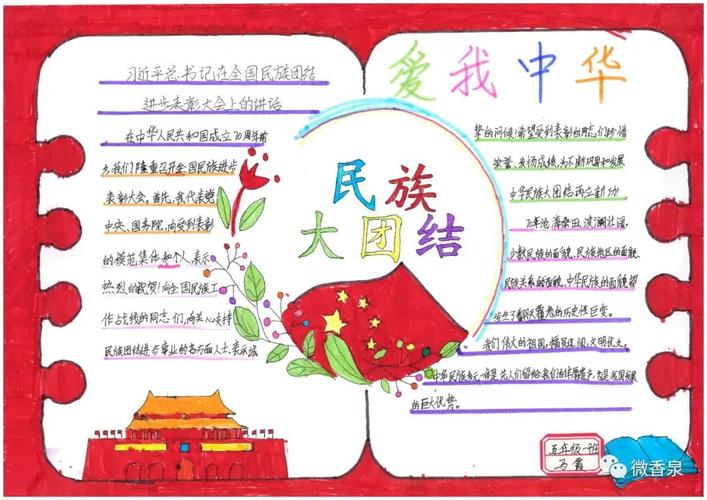 习近平总书记在全国民族团结
进步表彰大会上的讲话
在中华人民共和国成立70周年前
夕,我们隆重召开全国民族进步
表彰大会。首先,我代表党
中央、国务院,向受到表彰
的模范集体和个人,表示
热烈的祝贺!向全国民族工
作战线的同志们,向关心支持
民族团结进步事业的各方面人士,表示诚
民族
大团结
爱我中华
挚的问候!希望受到表彰的同志们珍惜
荣誉、发扬成绩,为不断巩固和发展
中华民族大团结再立新功!
70年沧海桑田、波澜壮阔,
少数民族的面貌、民族地区的面貌、
民族关系的面貌、中华民族的面貌都
发生了翻天覆地的历史性巨变。
我们伟大的祖国,幅员辽阔,文明悠久,
中华民族多元一体是先人们留给我们的丰厚遗产,也是我国发展
的巨大优势。
五年级一班
马霞
微香泉